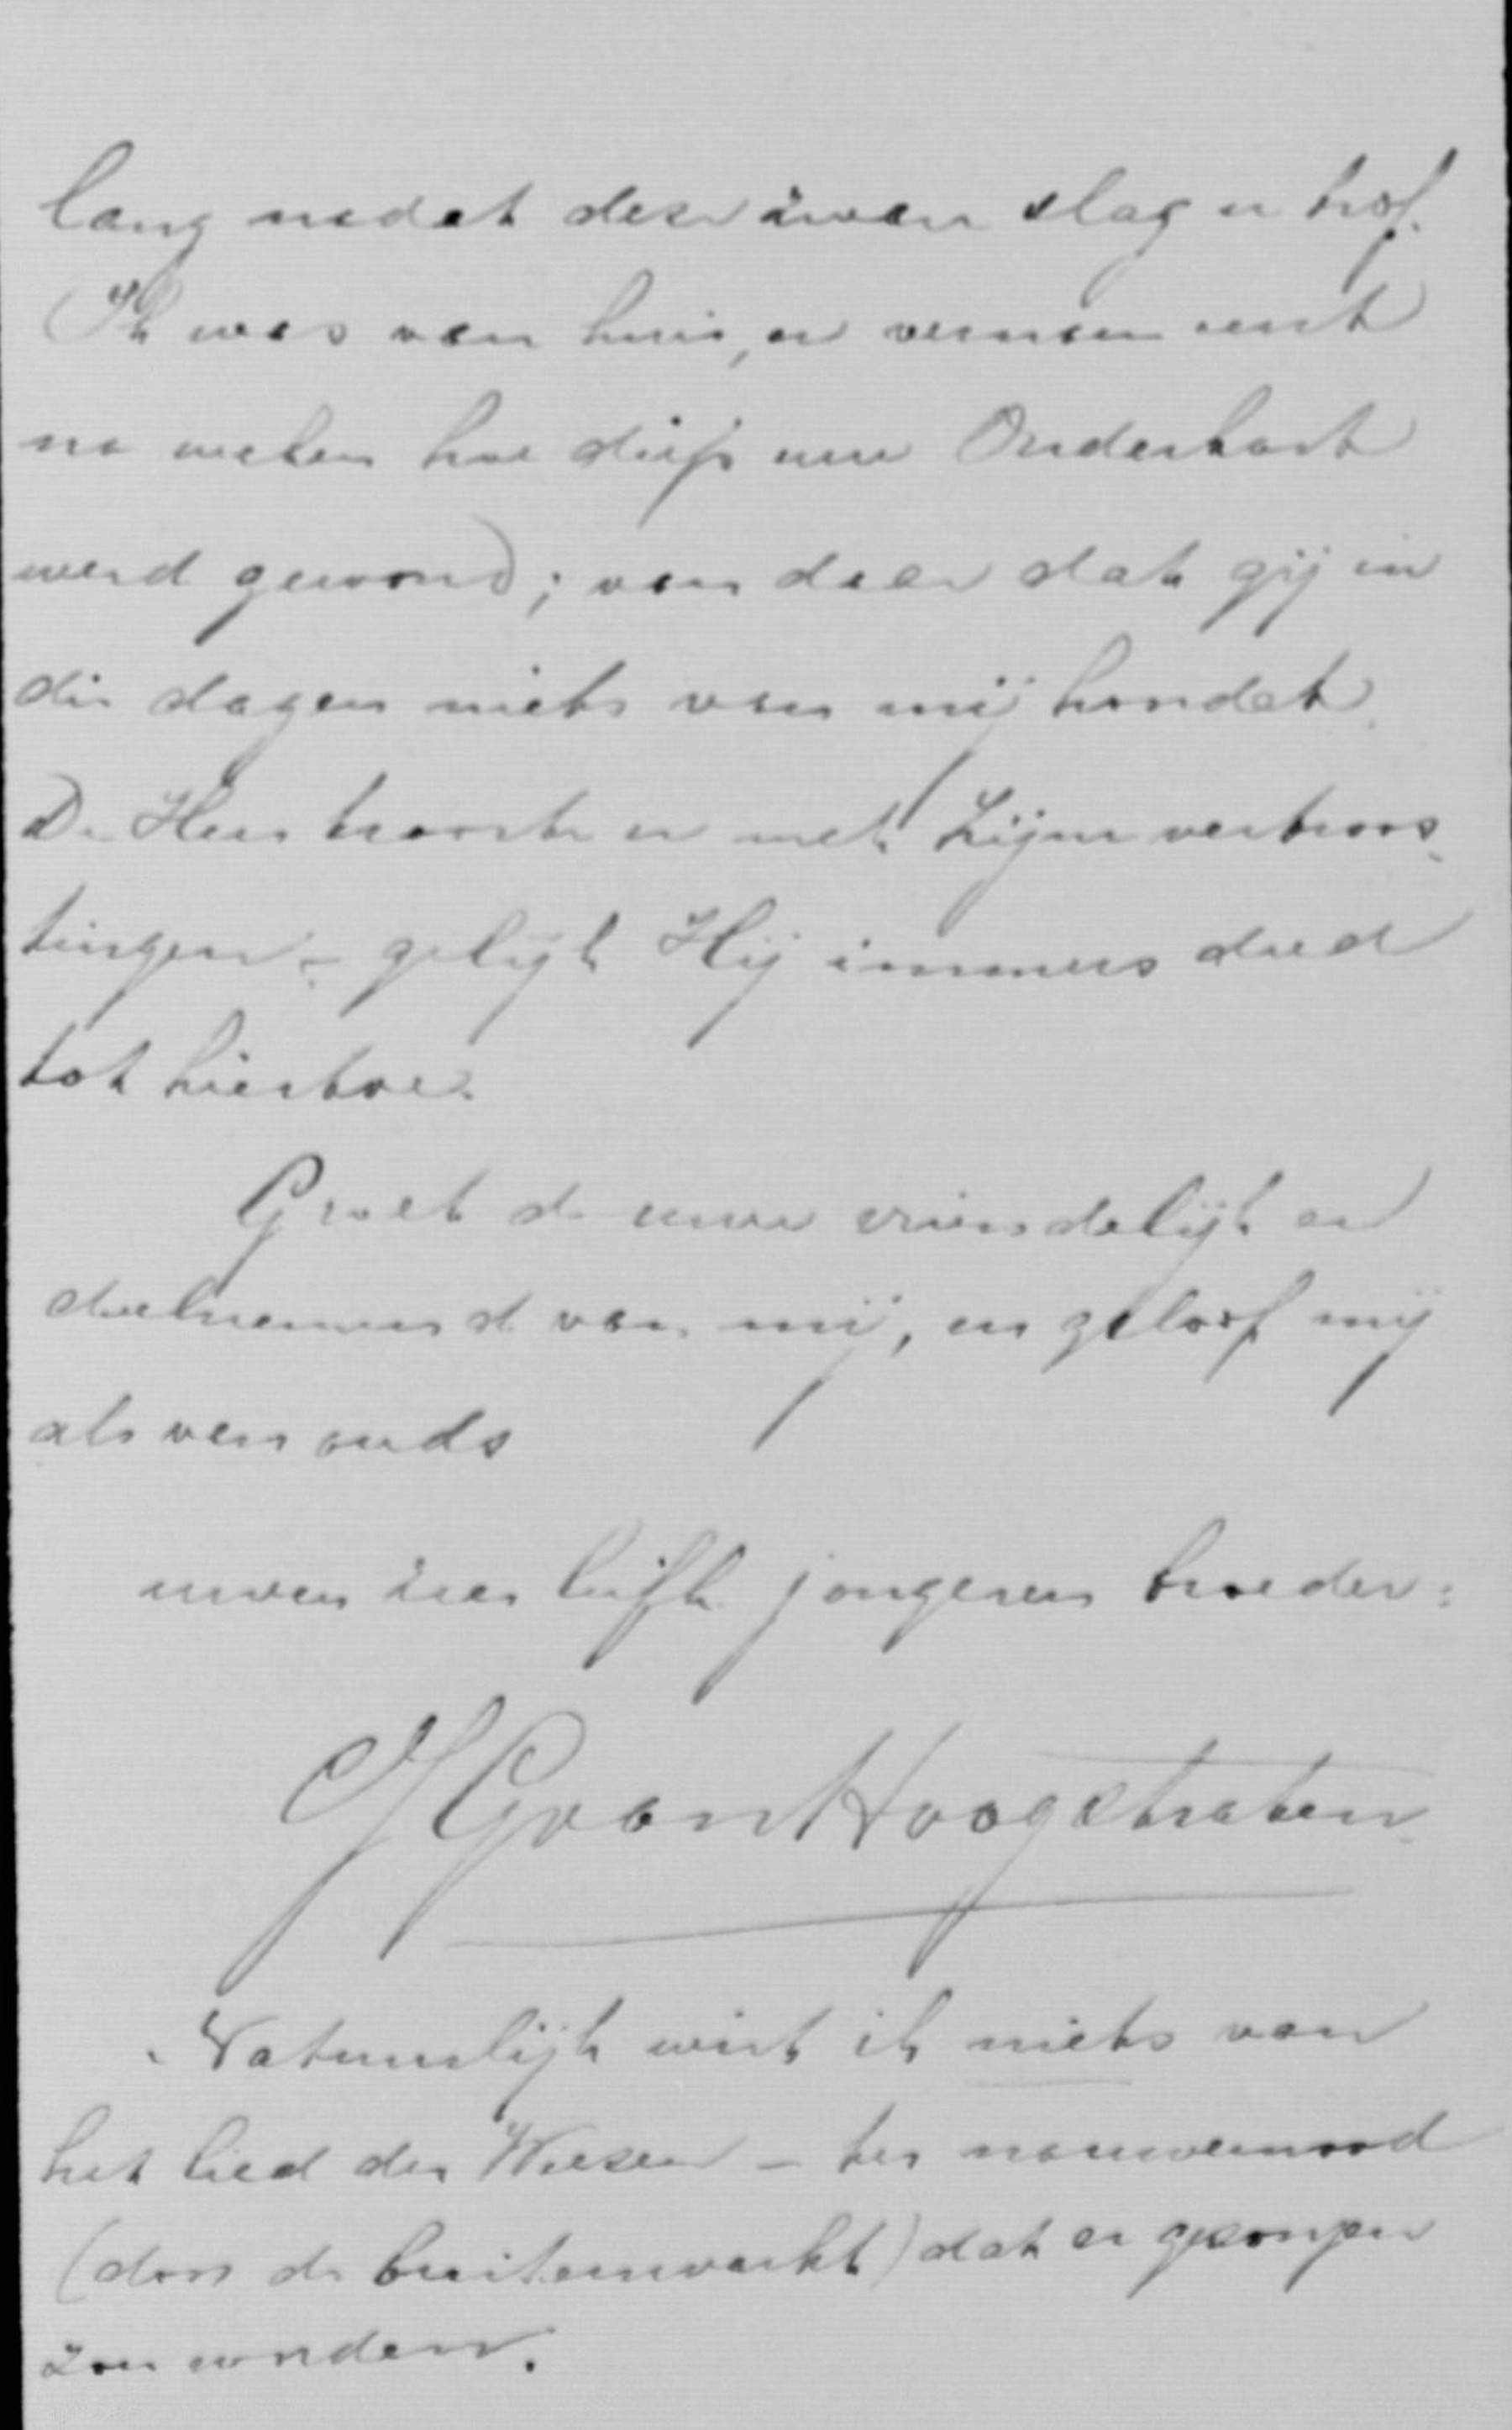 lang nadat deze zware slag u trof.
Ik was van huis, en vernam eerst
na weken hoe diep uw Ouderhart
werd gewond; van daar dat gij in
die dagen niets van mij hoordet.
De Heer trooste u met Zijne vertroos-
tingen - gelijk Hij immers deed
tot hiertoe.
Groet de uwen vriendelijk en
deelnemend van mij, en geloof mij
als van ouds
uwen zeer liefh. jongeren broeder:
J G van Hoogstraten
Natuurlijk wist ik niets van
het lied der Weezen - ter nauwernood
(door de buitenwacht) dat er gezongen
zou worden.